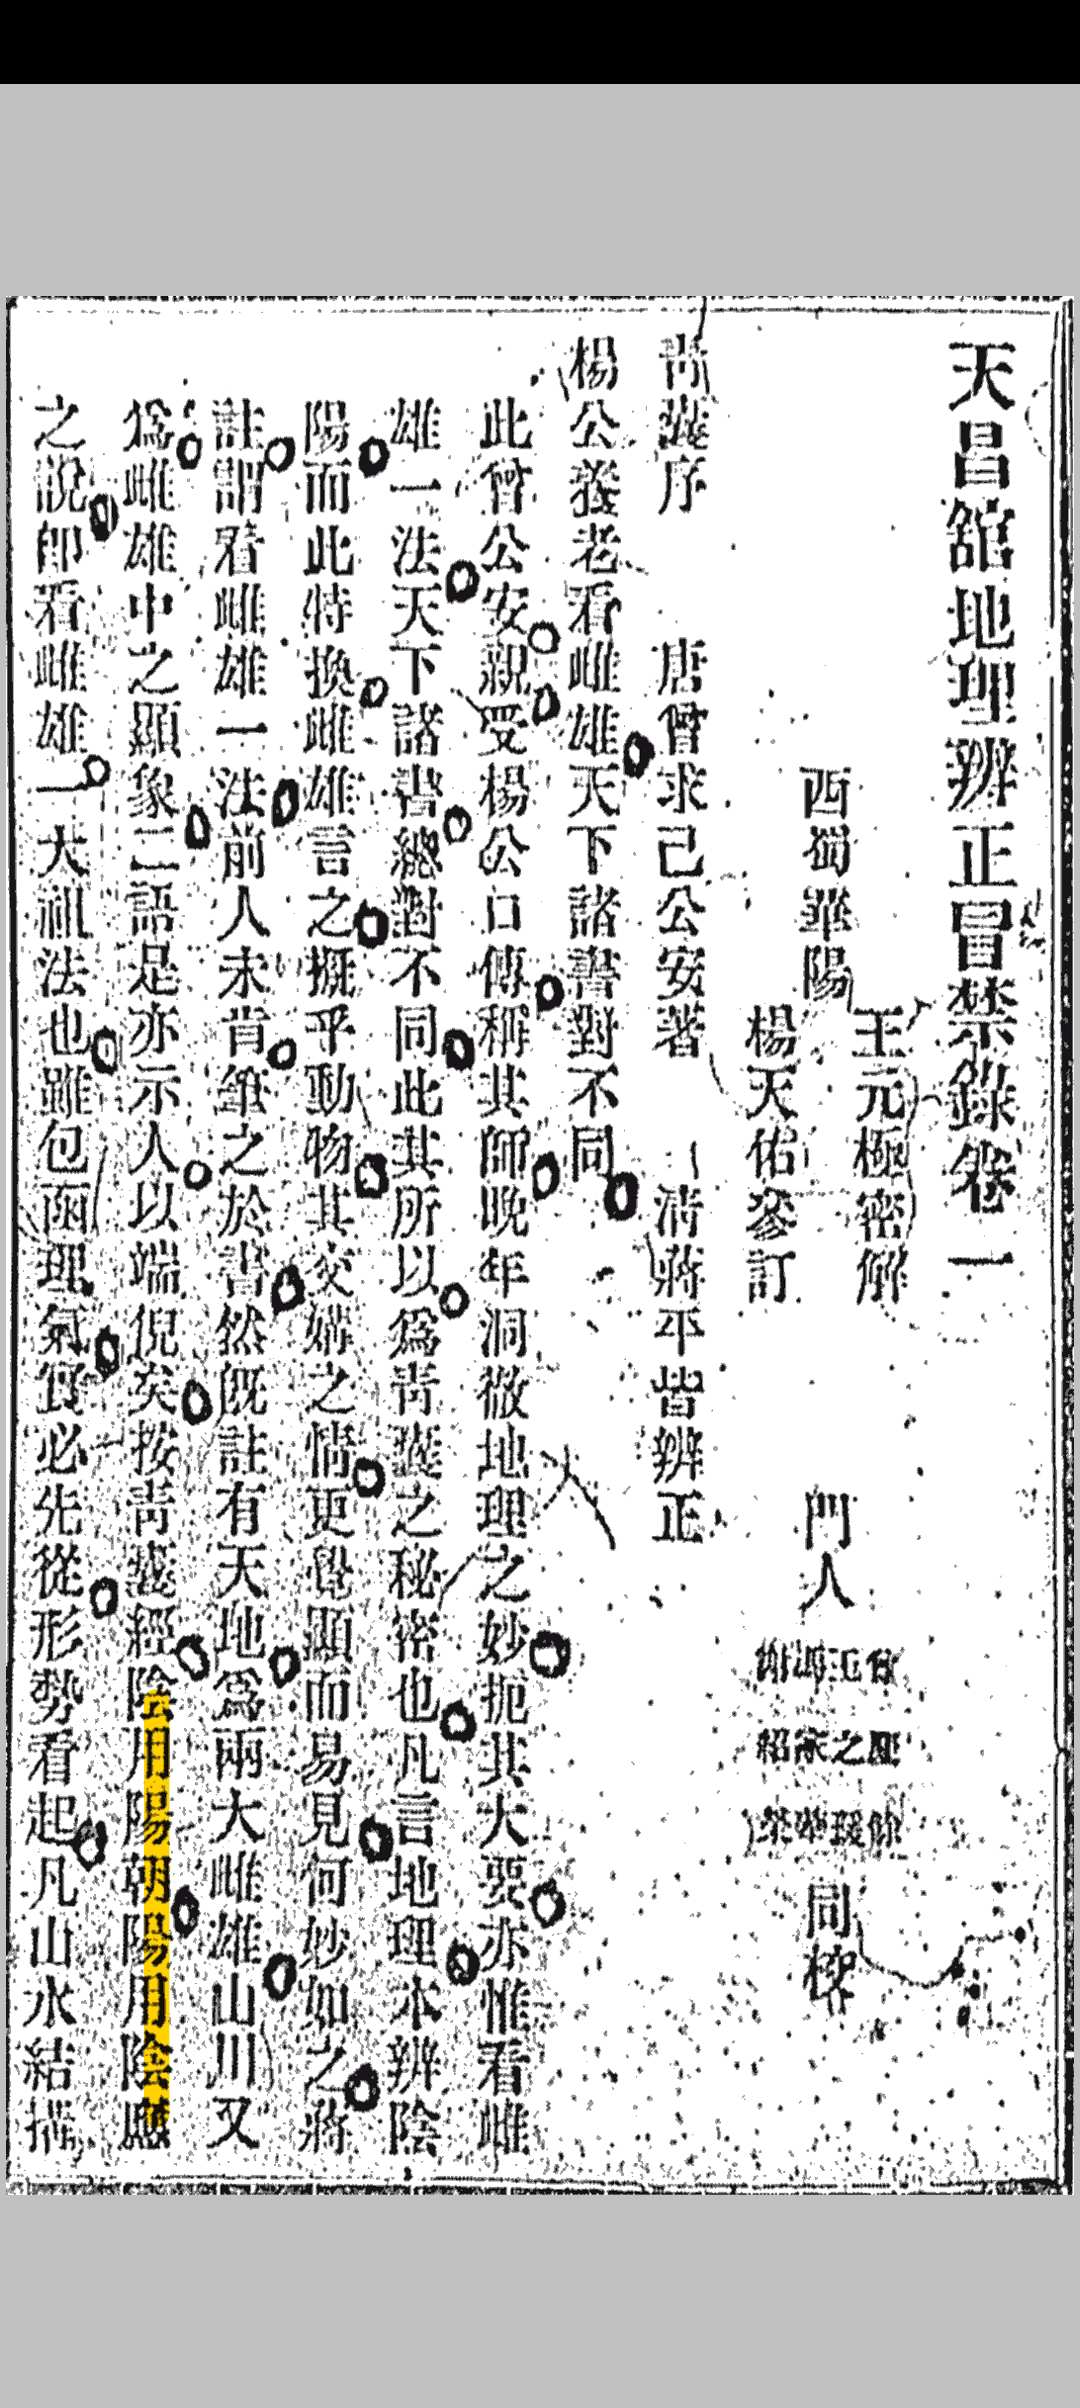 天昌舘地理辨正冒禁錄卷一
西蜀華陽
王元極密解
楊天佑參訂
門人
同校
靑囊序 唐曾求己公安著 清蔣平皆辨正
楊公養老看雌雄天下諸書對不同
此曾公安親受楊公口傳稱其師晩年洞徹地理之妙扼其大要亦惟看雌
雄一法天下諸書總對不同此其所以爲靑囊之秘密也凡言地理本辨陰
陽而此特換雌雄言之擬乎動物其交媾之情更覺顯而易見何妙如之蔣
註謂看雌雄一法前人未肯筆之於書然旣註有天地爲兩大雌雄山川又
爲雌雄中之顯象二語是亦示人以端倪矣按靑囊經陰用陽朝陽用陰應
之說卽看雌雄一大祖法也雖包函理氣實必先從形勢看起凡山水結搆